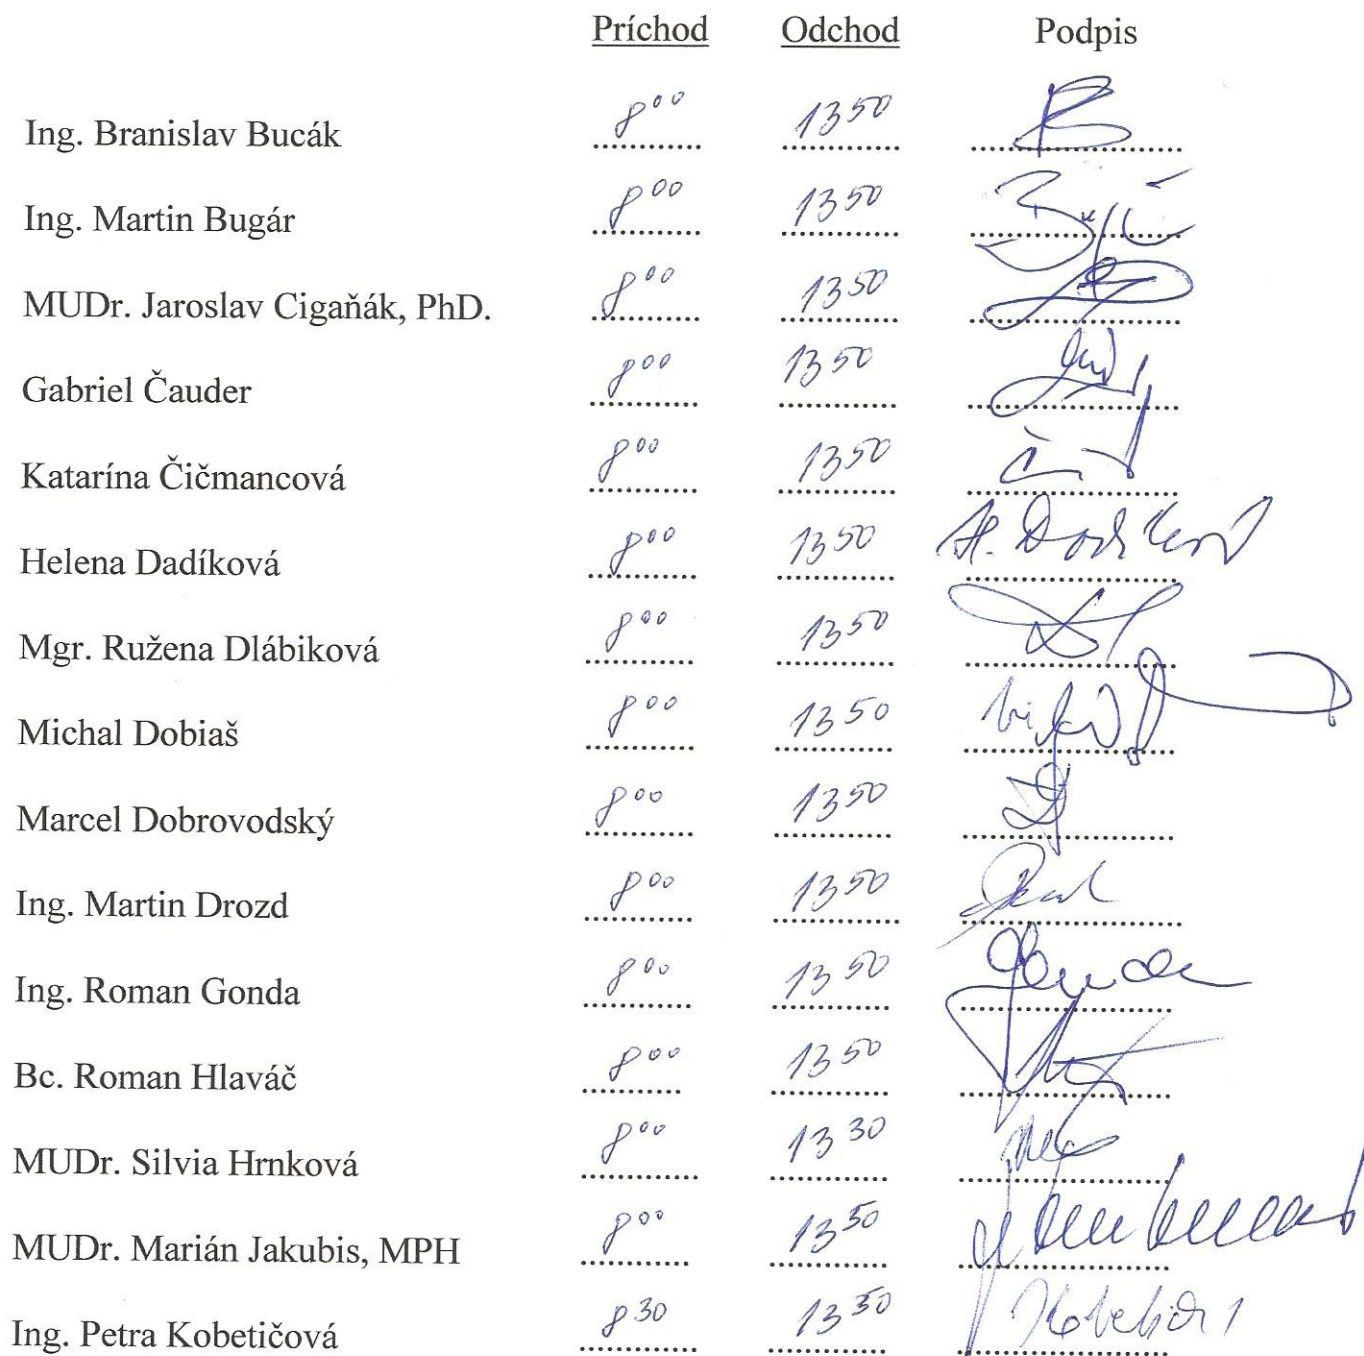 Príchod Odchod Podpis
Ing. Branislav Bucák 8⁰⁰ 13⁵⁰
Ing. Martin Bugár 8⁰⁰ 13⁵⁰
MUDr. Jaroslav Cigaňák, PhD. 8⁰⁰ 13⁵⁰
Gabriel Čauder 8⁰⁰ 13⁵⁰
Katarína Čičmancová 8⁰⁰ 13⁵⁰
Helena Dadíková 8⁰⁰ 13⁵⁰
Mgr. Ružena Dlábiková 8⁰⁰ 13⁵⁰
Michal Dobiaš 8⁰⁰ 13⁵⁰
Marcel Dobrovodský 8⁰⁰ 13⁵⁰
Ing. Martin Drozd 8⁰⁰ 13⁵⁰
Ing. Roman Gonda 8⁰⁰ 13⁵⁰
Bc. Roman Hlaváč 8⁰⁰ 13⁵⁰
MUDr. Silvia Hrnková 8⁰⁰ 13³⁰
MUDr. Marián Jakubis, MPH 8⁰⁰ 13⁵⁰
Ing. Petra Kobetičová 8³⁰ 13⁵⁰